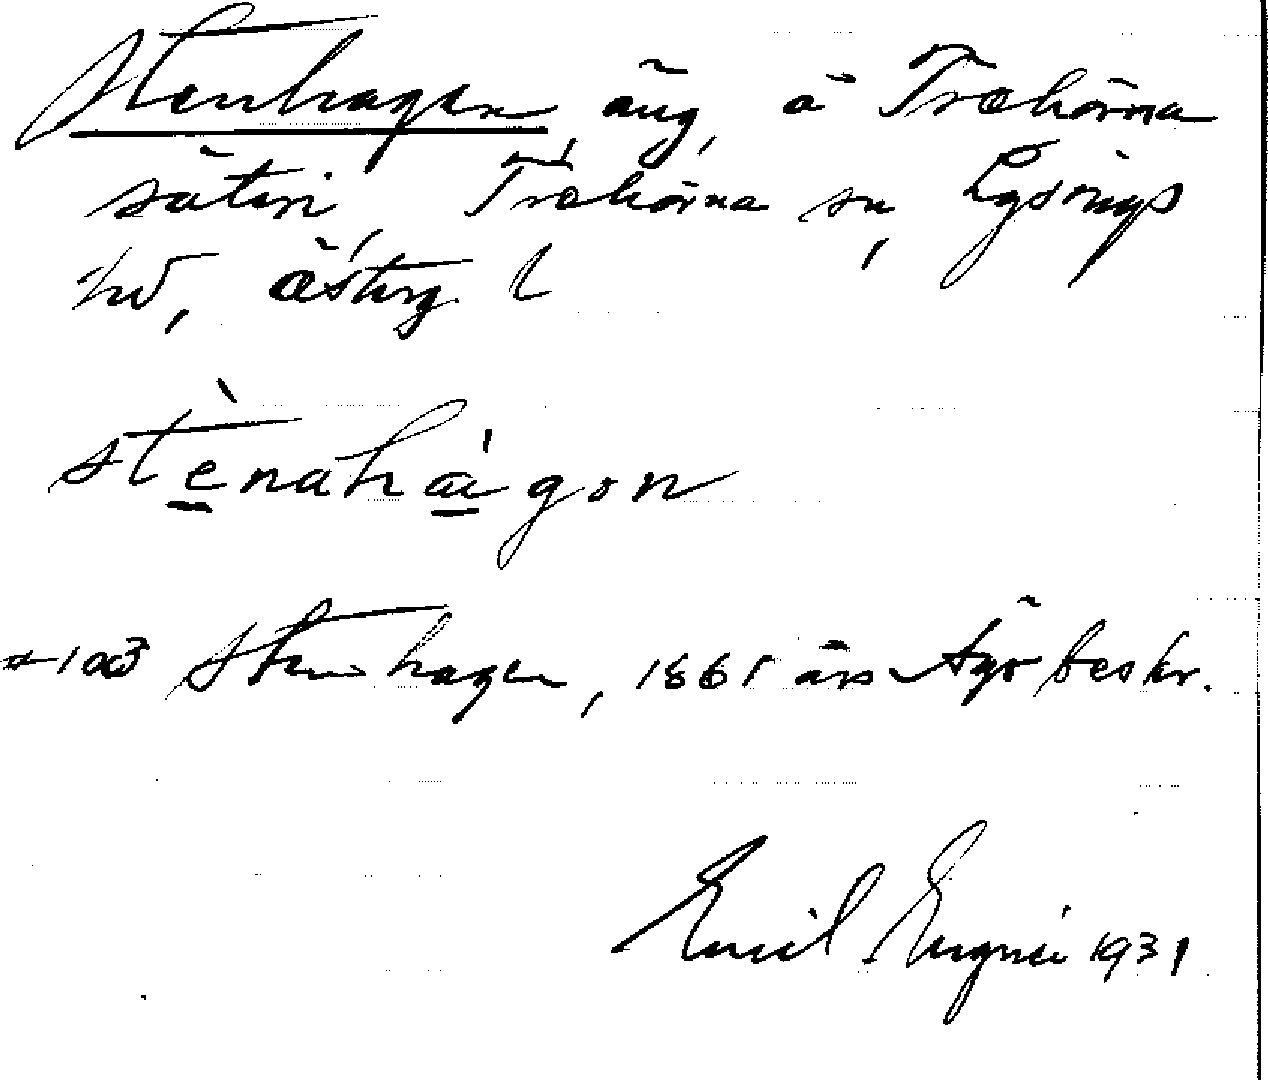 Stenhagen, äng, å Trehörna
säteri, Trehörna sn, Lysings
hd, Österg. l
stènahágon
103 Stenhagen, 1861 års Ägobeskr.
Emil 1931